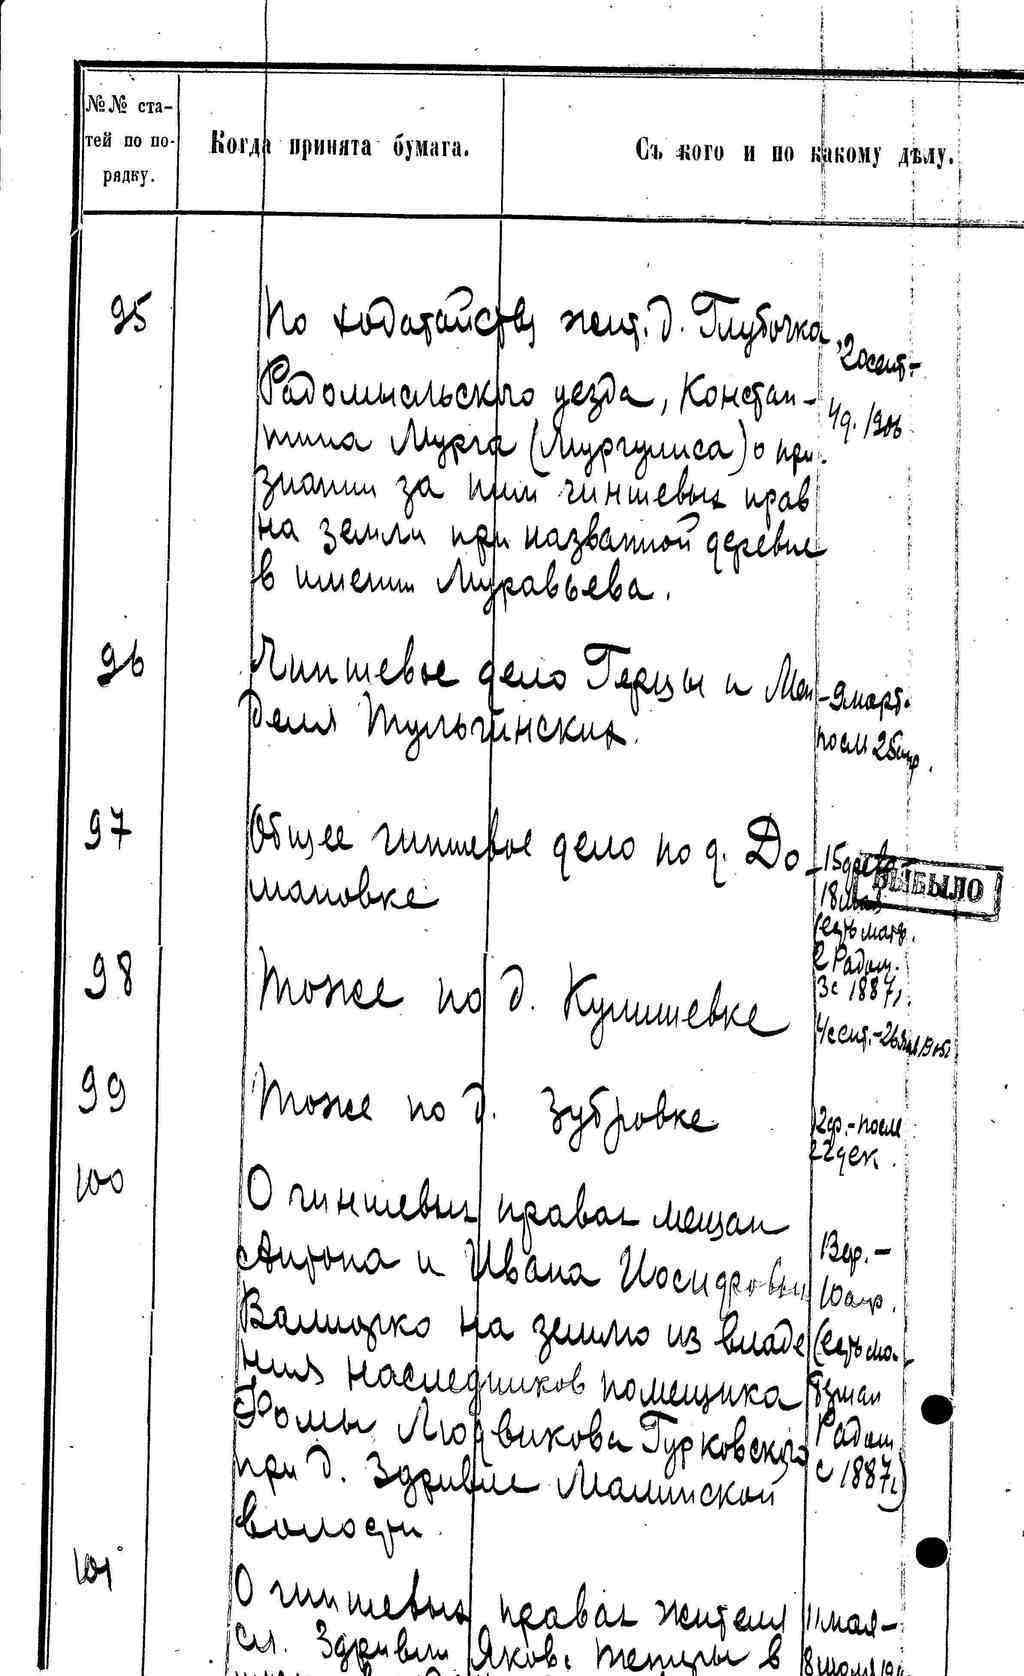 №№ ста-
тей по по-
рядку.
Когда принята бумага.
Съ кого и по какому дѣлу.
95
По ходатайству жит. д. Глубочка,
Радомысльского уезда, Констан-
тина Мурга (Мургулиса) о при-
знании за ним чиншевых прав
на земли при названной деревне
в имении Муравьева.
20 сент.-
4 д. 1906
96
Чиншевое дело Герцы и Мен-
деля Тульчинских.
9 март.
после 25 апр.
97
Общее чиншевое дело по д. До-
мановке
15
18
(есть мат.
2 Радом.
3 с 1887 г.
ВЫБЫЛО
98
Тоже по д. Кулишевке
4 сент.-26
99
Тоже по д. Зубровке
12 ф.-после
22 дек.
100
О чиншевых правах мещан
Антона и Ивана Иосифовых
Валицко на землю из владе
ния наследников помещика
Фомы Людвикова Гурковского
при д. Здривле Малинской
волости.
13 ф.-
10 апр.
(есть ма-
Радом
с 1887 г.)
101
О чиншевых правах жителя
сл. Здривли Яков.
в
11 мая-
8 июля